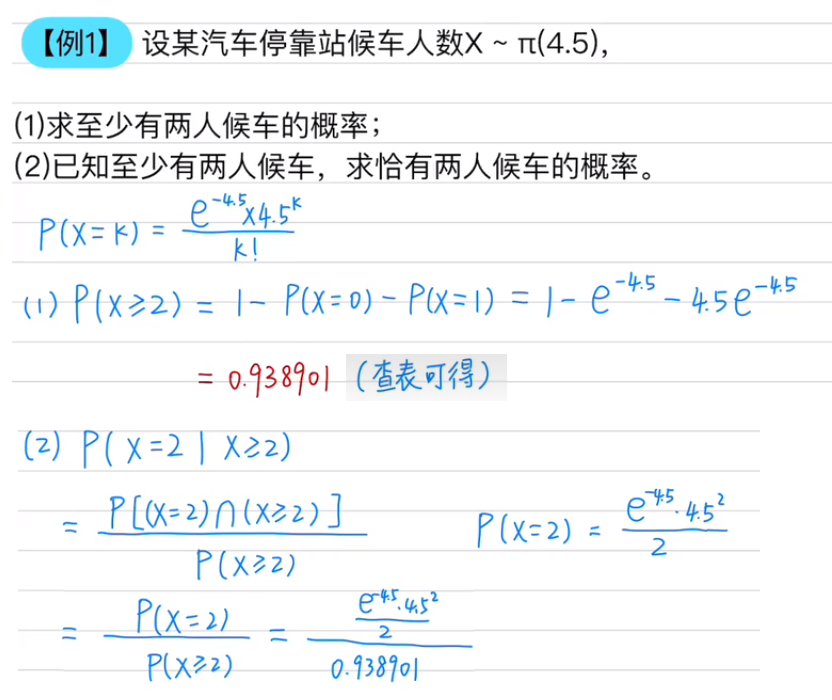 【例1】 设某汽车停靠站候车人数X ~ π(4.5),
(1)求至少有两人候车的概率；
(2)已知至少有两人候车，求恰有两人候车的概率。
P(X=k) = \frac{e^{-4.5}×4.5^k}{k!}
(1) P(X≥2) = 1 - P(X=0) - P(X=1) = 1 - e^{-4.5} - 4.5e^{-4.5}
= 0.938901 (查表可得)
(2) P(X=2 | X≥2)
= \frac{P[(X=2)∩(X≥2)]}{P(X≥2)} P(X=2) = \frac{e^{-4.5}·4.5^2}{2}
= \frac{P(X=2)}{P(X≥2)} = \frac{\frac{e^{-4.5}·4.5^2}{2}}{0.938901}